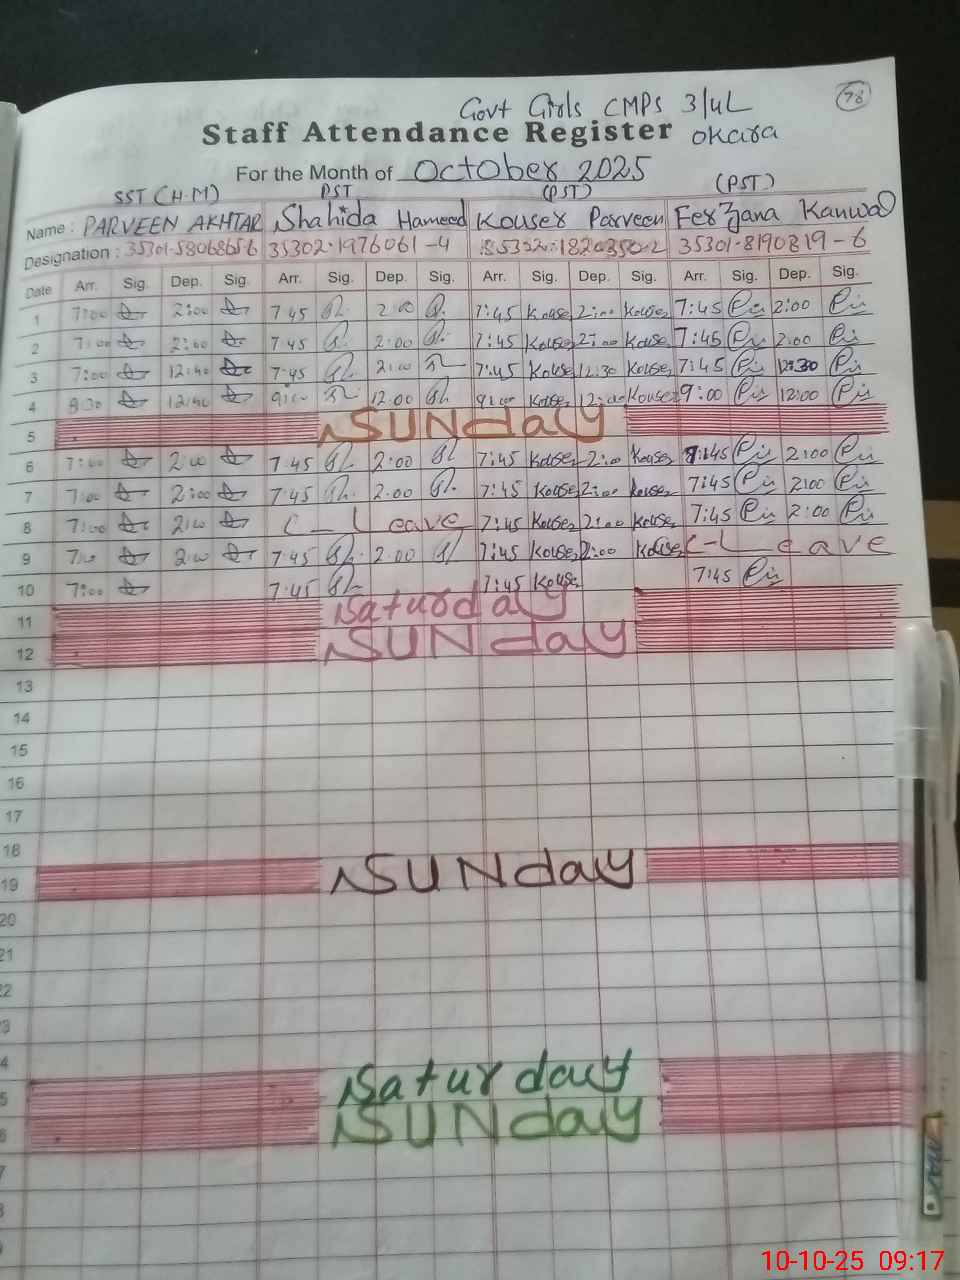 Govt Girls CMPS 3/4L
78
Staff Attendance Register Okara
For the Month of October 2025
SST (H.M) PST (PST) (PST)
Name : PARVEEN AKHTAR Shahida Hameed Kouser Parveen Ferzana Kanwal
Designation : 35301-5806865-6 35302-1976061-4 35301-8190819-6
Date Arr. Sig. Dep. Sig. Arr. Sig. Dep. Sig. Arr. Sig. Dep. Sig. Arr. Sig. Dep. Sig.
1 7:00 2:00 7:45 2:00 7:45 Kouser 2:00 Kouser 7:45 2:00
2 7:00 2:00 7:45 2:00 7:45 Kouser 2:00 Kouser 7:45 2:00
3 7:00 12:40 7:45 2:00 7:45 Kouser 12:30 Kouser 7:45 12:30
4 8:30 12:40 9:00 12:00 9:00 Kouser 12:00 Kouser 9:00 12:00
5 SUNday
6 7:00 2:00 7:45 2:00 7:45 Kouser 2:00 Kouser 7:45 2:00
7 7:00 2:00 7:45 2:00 7:45 Kouser 2:00 Kouser 7:45 2:00
8 7:00 2:00 C-Leave 7:45 Kouser 2:00 Kouser 7:45 2:00
9 7:00 2:00 7:45 2:00 7:45 Kouser 2:00 Kouser C-Leave
10 7:00 7:45 7:45 Kouser 7:45
11 Saturday
12 SUNday
13
14
15
16
17
18
19 SUNday
20
21
22
23
24
25 Saturday
26 SUNday
10-10-25 09:17